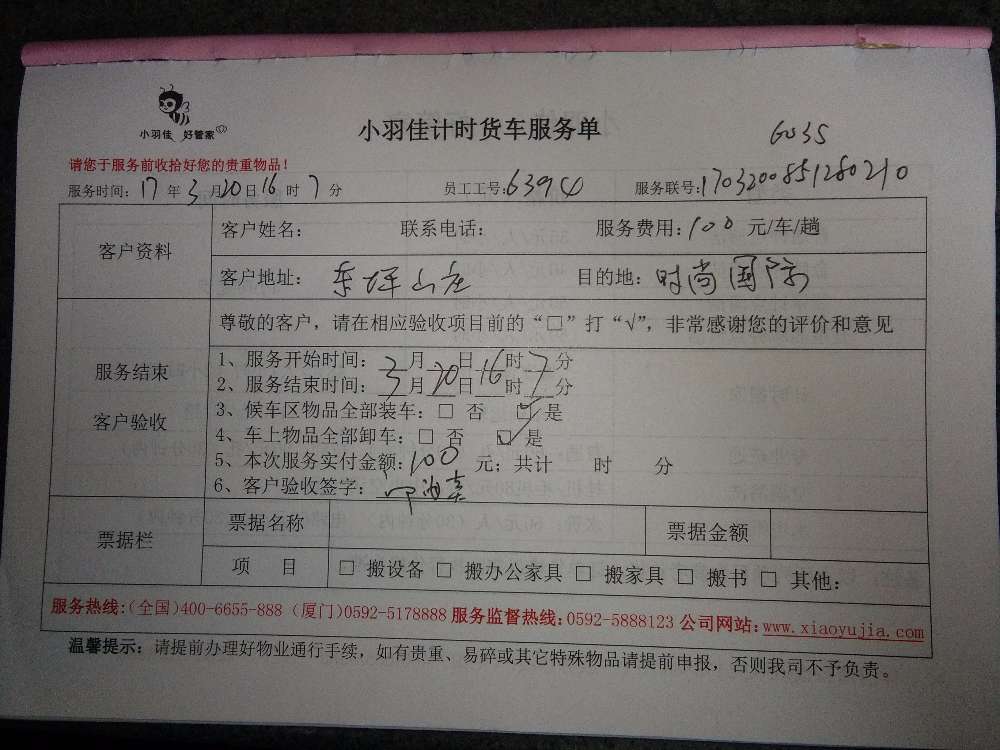 小羽佳 好管家
小羽佳计时货车服务单
6035
请您于服务前收拾好您的贵重物品！
服务时间：17年3月20日16时7分 员工工号：63994 服务联号：1703200851280210
客户资料
客户姓名： 联系电话： 服务费用：100元/车/趟
客户地址： 坪山庄 目的地：时尚国际
服务结束
客户验收
尊敬的客户，请在相应验收项目前的“□”打“√”，非常感谢您的评价和意见
1、服务开始时间：3月20日16时7分
2、服务结束时间：3月20日16时7分
3、候车区物品全部装车：□ 否 □ 是
4、车上物品全部卸车：□ 否 □ 是
5、本次服务实付金额：100元；共计 时 分
6、客户验收签字：
票据栏
票据名称 票据金额
项 目 □ 搬设备 □ 搬办公家具 □ 搬家具 □ 搬书 □ 其他：
服务热线：(全国)400-6655-888（厦门)0592-5178888 服务监督热线：0592-5888123 公司网站：www.xiaoyujia.com
温馨提示：请提前办理好物业通行手续，如有贵重、易碎或其它特殊物品请提前申报，否则我司不予负责。